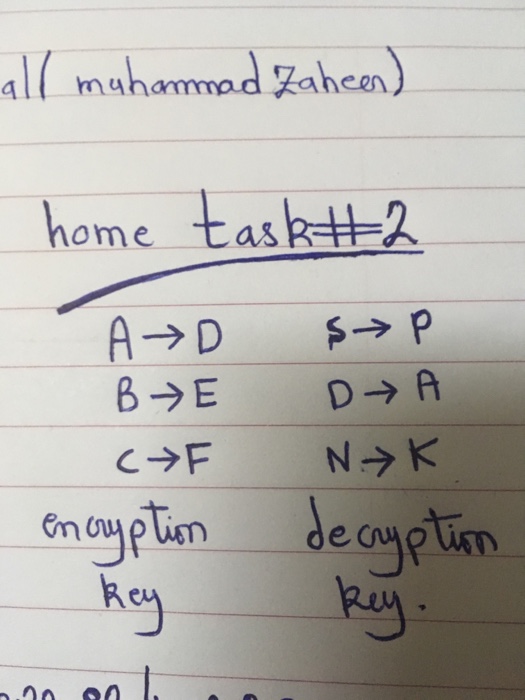 all( muhammad Zaheen)
home task#2
A→D S→P
B→E D→A
C→F N→K
encryption decryption
key key.